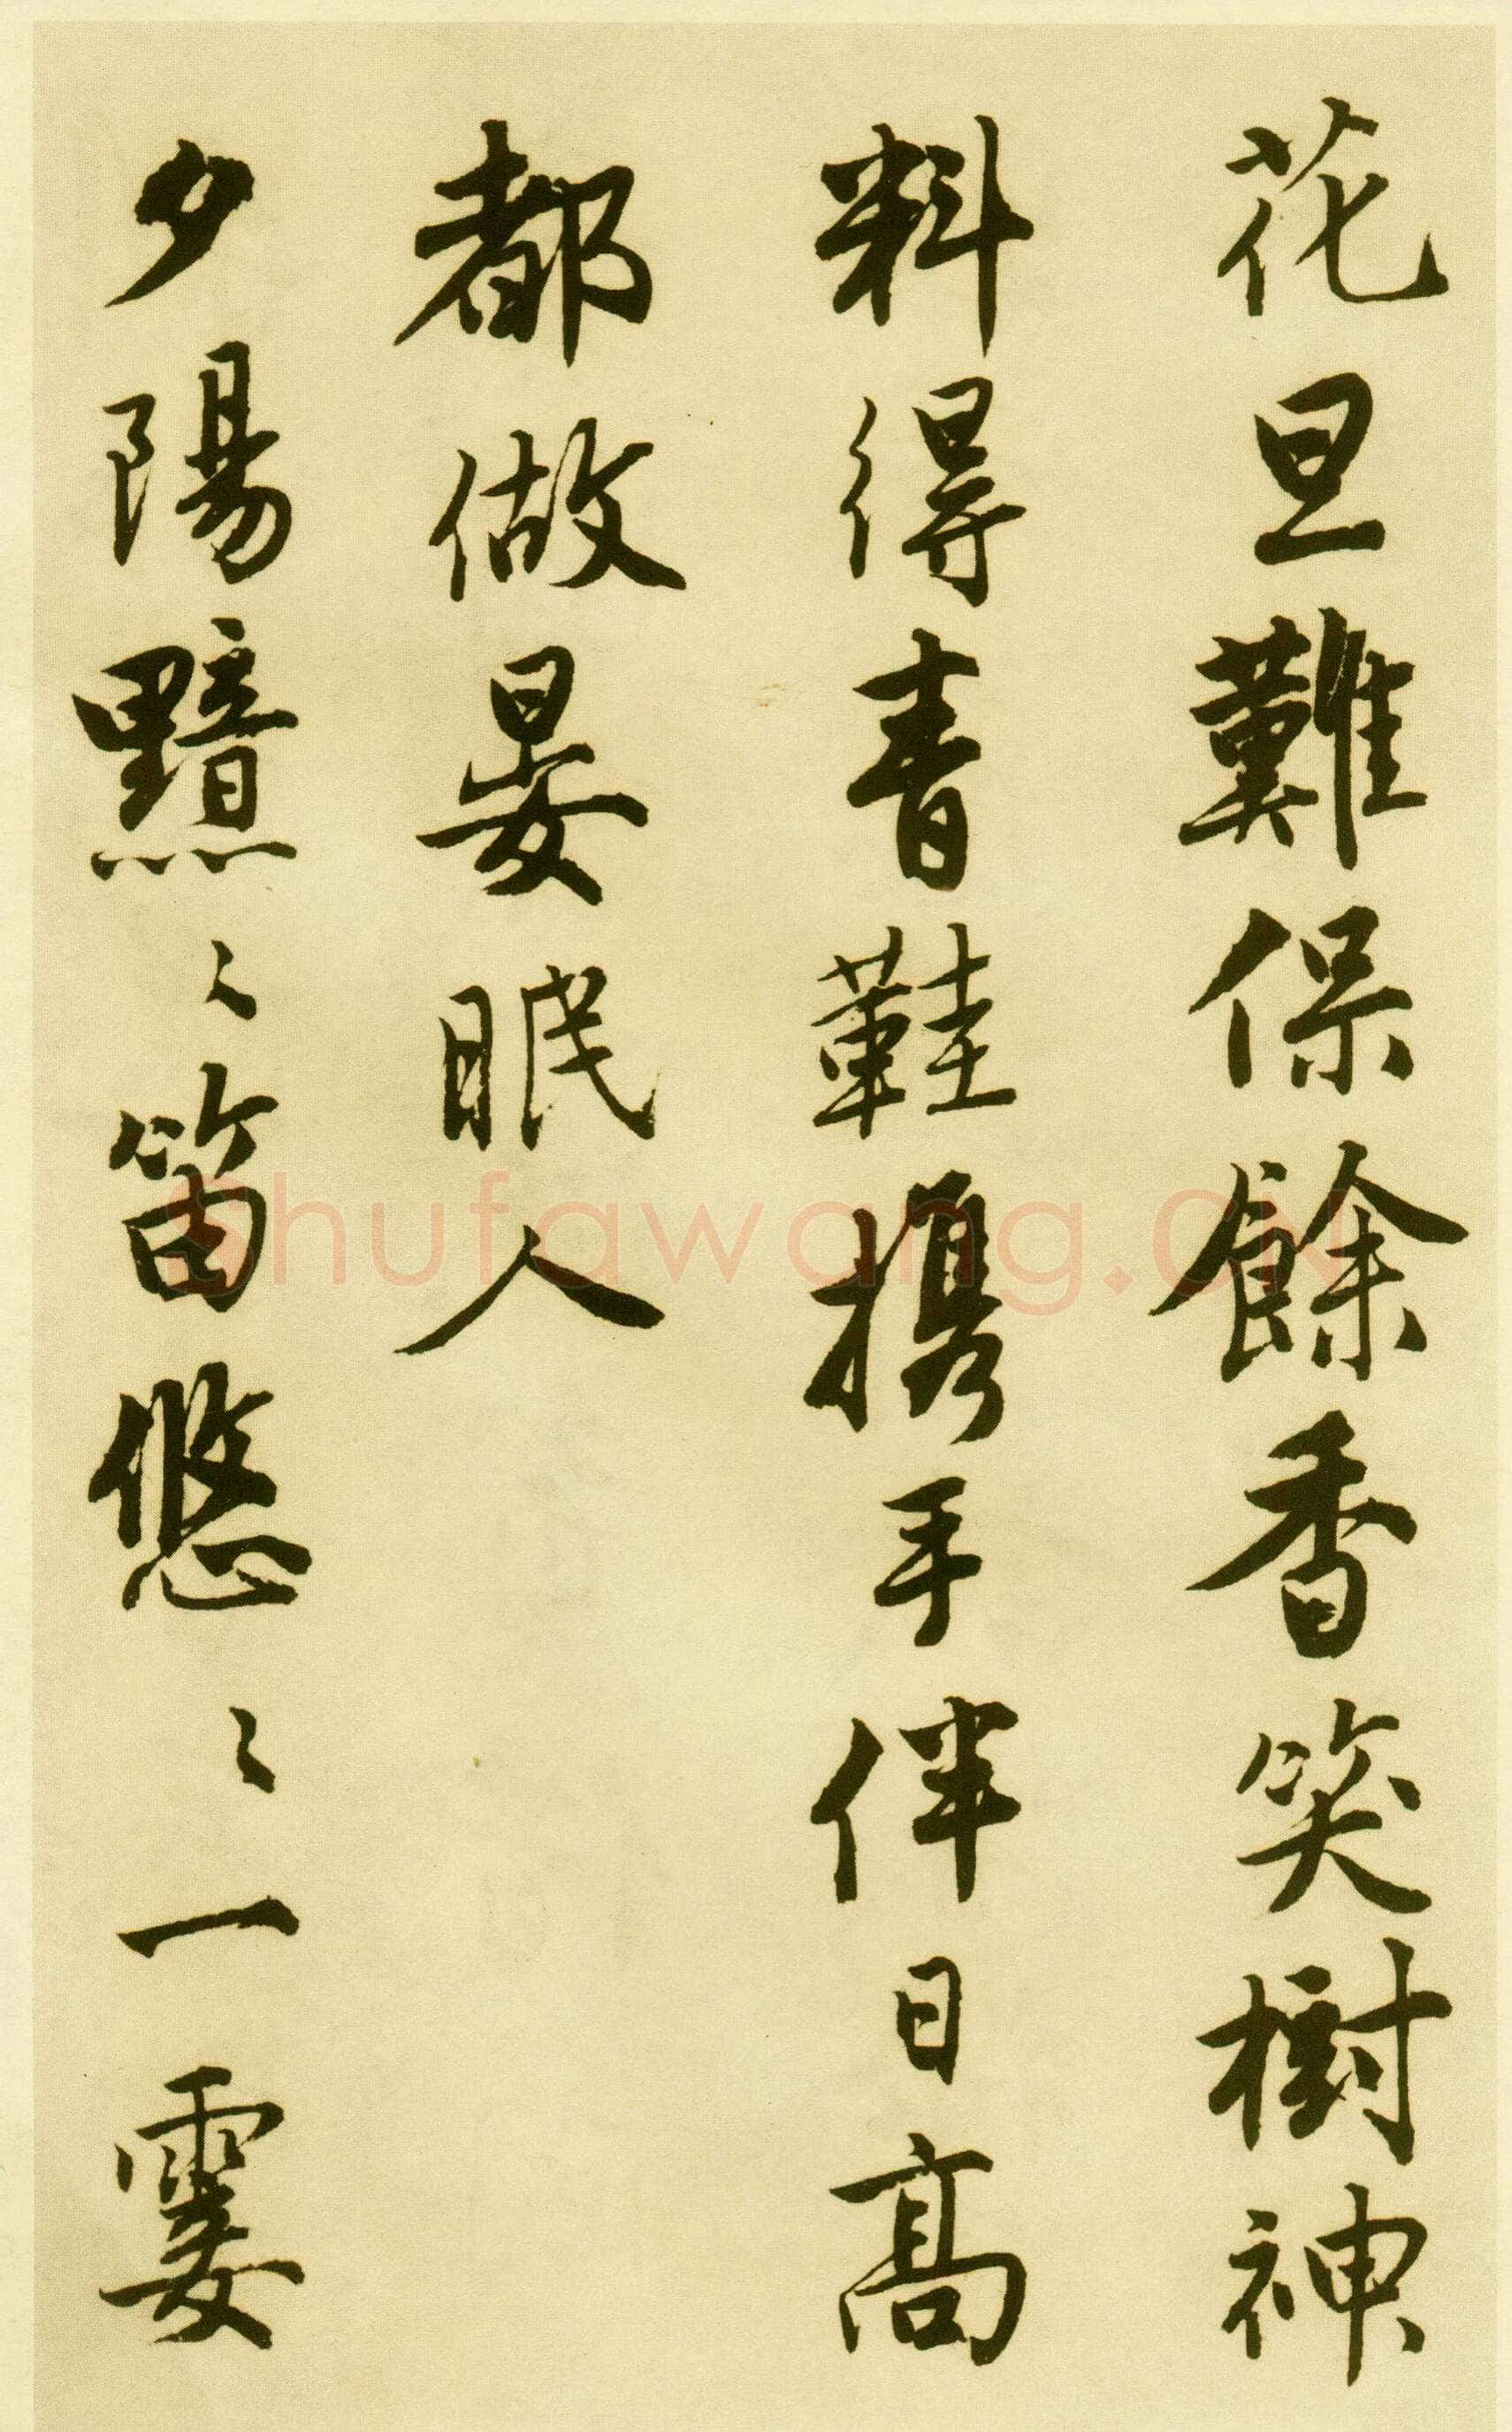 花旦難保餘香笑樹神
料得青鞋携手伴日高
都做晏眠人
夕陽黯〻笛悠〻一霎
shufawang.cn